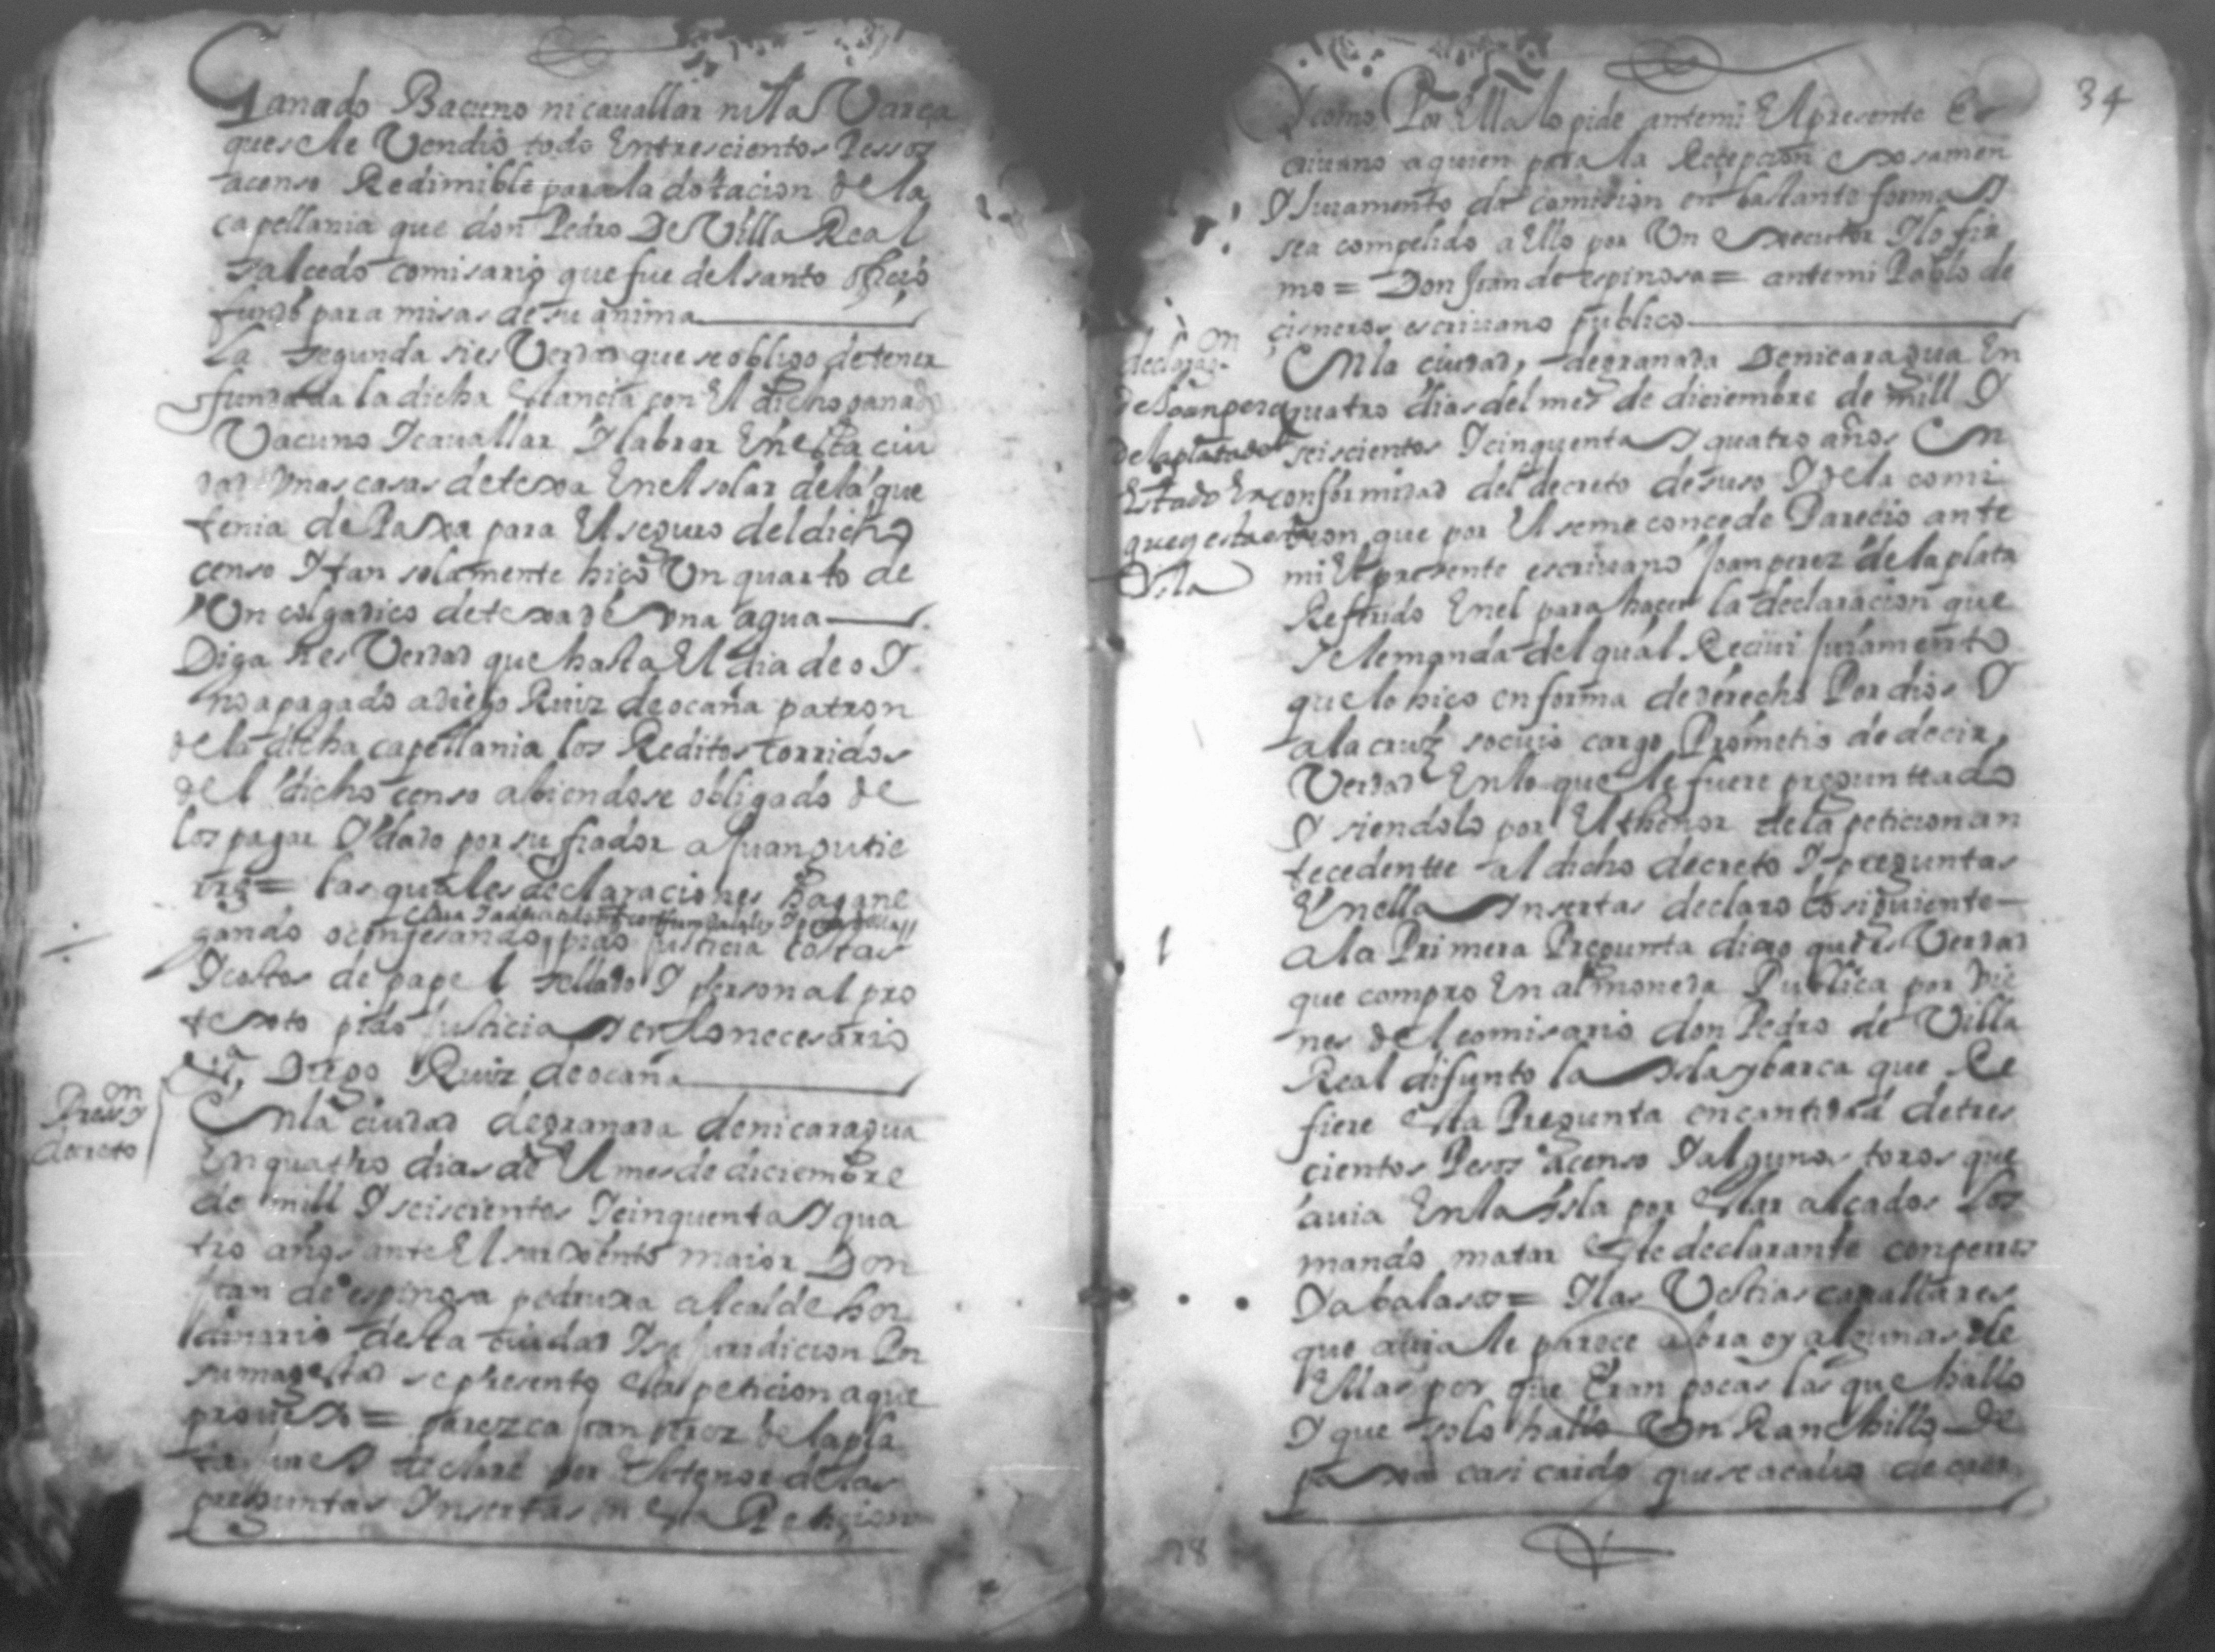 Ganado Bacuno ni cauallar ni la Varca
que se le Vendio todo En trescientos Pessos
a censo Redimible para la dotacion de la
capellania que don Pedro De Villa Real
salcedo comisario que fue del santo oficio
fundó para misas de su anima
La segunda si es Verdad que se obligo de tener
fundada la dicha Estancia con El dicho ganado
Vacuno I cauallar I labrar En esta ciu
dad Vnas casas de texa En el solar de la que
tenia de Paxa para El seguro del dicho
censo I tan solamente hiço Vn quarto de
Vn colgadico de texa de Vna agua
Diga si es Verdad que hasta El dia de o I
no a pagado a diego Ruiz de ocaña patron
de la dicha capellania los Reditos corridos
del dicho censo abiendose obligado de
los pagar I dado por su fiador a Juan gutie
rrez = las quales declaraciones haga ne
gando o confesando pido Justicia costas
I costos de papel sellado I personal pro
texto pido Justicia I en lo necesario
Diego Ruiz de ocaña
Press.on
y decreto
En la ciudad de granada de nicaragua
En quatro dias de El mes de diciembre
de mill I seiscientos I cinquenta I qua
tro años ante El sarxento maior Don
Juan de espinosa pedruxa alcalde hor
dinario desta ciudad I su Juridicion Por
su magestad se presento esta peticion a que
proueyo = parezca Juan perez de la pla
ta Jure I declare por El tenor de las
preguntas Insertas en Esta Peticion
34
I como Por Ella lo pide ante mi El presente Es
criuano a quien para la Recepcion
I Juramento da comision en bastante forma I
sea compelido a Ello por Vn Executor I lo fir
mo = Don Juan de espinosa = ante mi Pablo de
cisneros escriuano publico
declaraz.on
de Joan perez
de la plata
En la ciudad de granada De nicaragua En
quatro dias del mes de diciembre de mill I
seiscientos I cinquenta I quatro años En
conformidad del decreto de suso I de la comi
sion que por El se me concede Parecio ante
mi El presente escriuano Joan perez de la plata
Referido En el para hacer la declaracion que
se le manda del qual Reciui Juramento
que lo hiço en forma de derecho Por dios I
a la cruz so cuio cargo Prometio de decir
Verdad En lo que le fuere preguntado
I siendolo por El thenor de la peticion an
tecedente al dicho decreto I preguntas
En ella Insertas declaro lo siguiente
1
a la Primera Pregunta dixo que es Verdad
que compro En almoneda Publica por Vie
nes del comisario don Pedro de Villa
Real difunto la Isla y barca que Re
fiere Esta Pregunta en cantidad de tres
cientos Pesos a censo I algunos toros que
auia En la Isla por Estar alçados los
mando matar Este declarante con perros
I a balasos = I las Vestias cauallares
que auia le parece abra oy algunas de
Ellas por que Eran pocas las que hallo
I que solo hallo Vn Ranchillo de
paxa casi caido que se acabo de caer
18